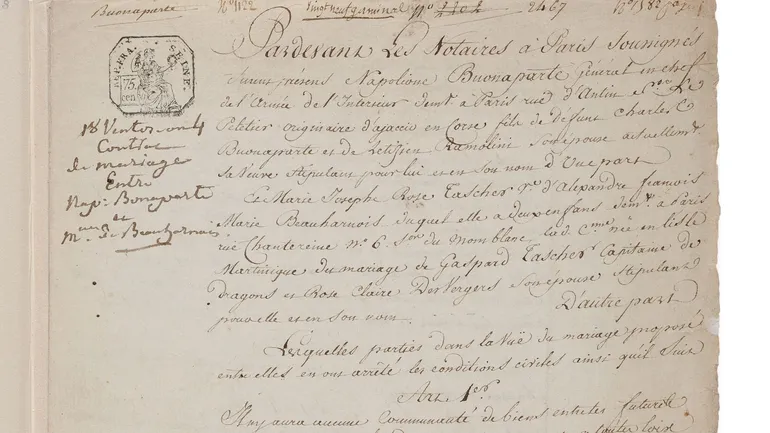 Buonaparte
vingt neuf germinal
2467
REP. FRA. SEINE.
75.
cen
18 Ventos an 4
Contrat
de mariage
Entre
Nap: Bonaparte
et
M.de de Beauharnais
Pardevant Les Notaires à Paris Soussignés
furent presens Napolione Buonaparte général en chef
de l'Armée de l'Interieur demt à Paris rue d'Antin Son Le
Peletier originaire d'ajaccio en Corse fils de défunt Charles
Buonaparte et de Letizien Ramolini Son épouse actuellemt
sa veuve Stipulant pour lui et en Son nom D'Une part
Et Marie Joseph Rose Tascher Ve d'Alexandre françois
Marie Beauharnois duquel elle a deux enfans demte à Paris
rue Chantereine No. 6. Son du Montblanc lad. Cenne née en L'isle
Martinique du mariage de Gaspard Tascher Capitaine de
Dragons et Rose Claire Desvergers Son épouse Stipulant
pour elle et en Son nom D'autre part
Lesquelles parties dans la Vuë du mariage proposé
entre elles en ont arrêté les conditions civiles ainsi qu'il Suit
Art. 1er.
Il n'y aura aucune Communauté de biens entre les futurs